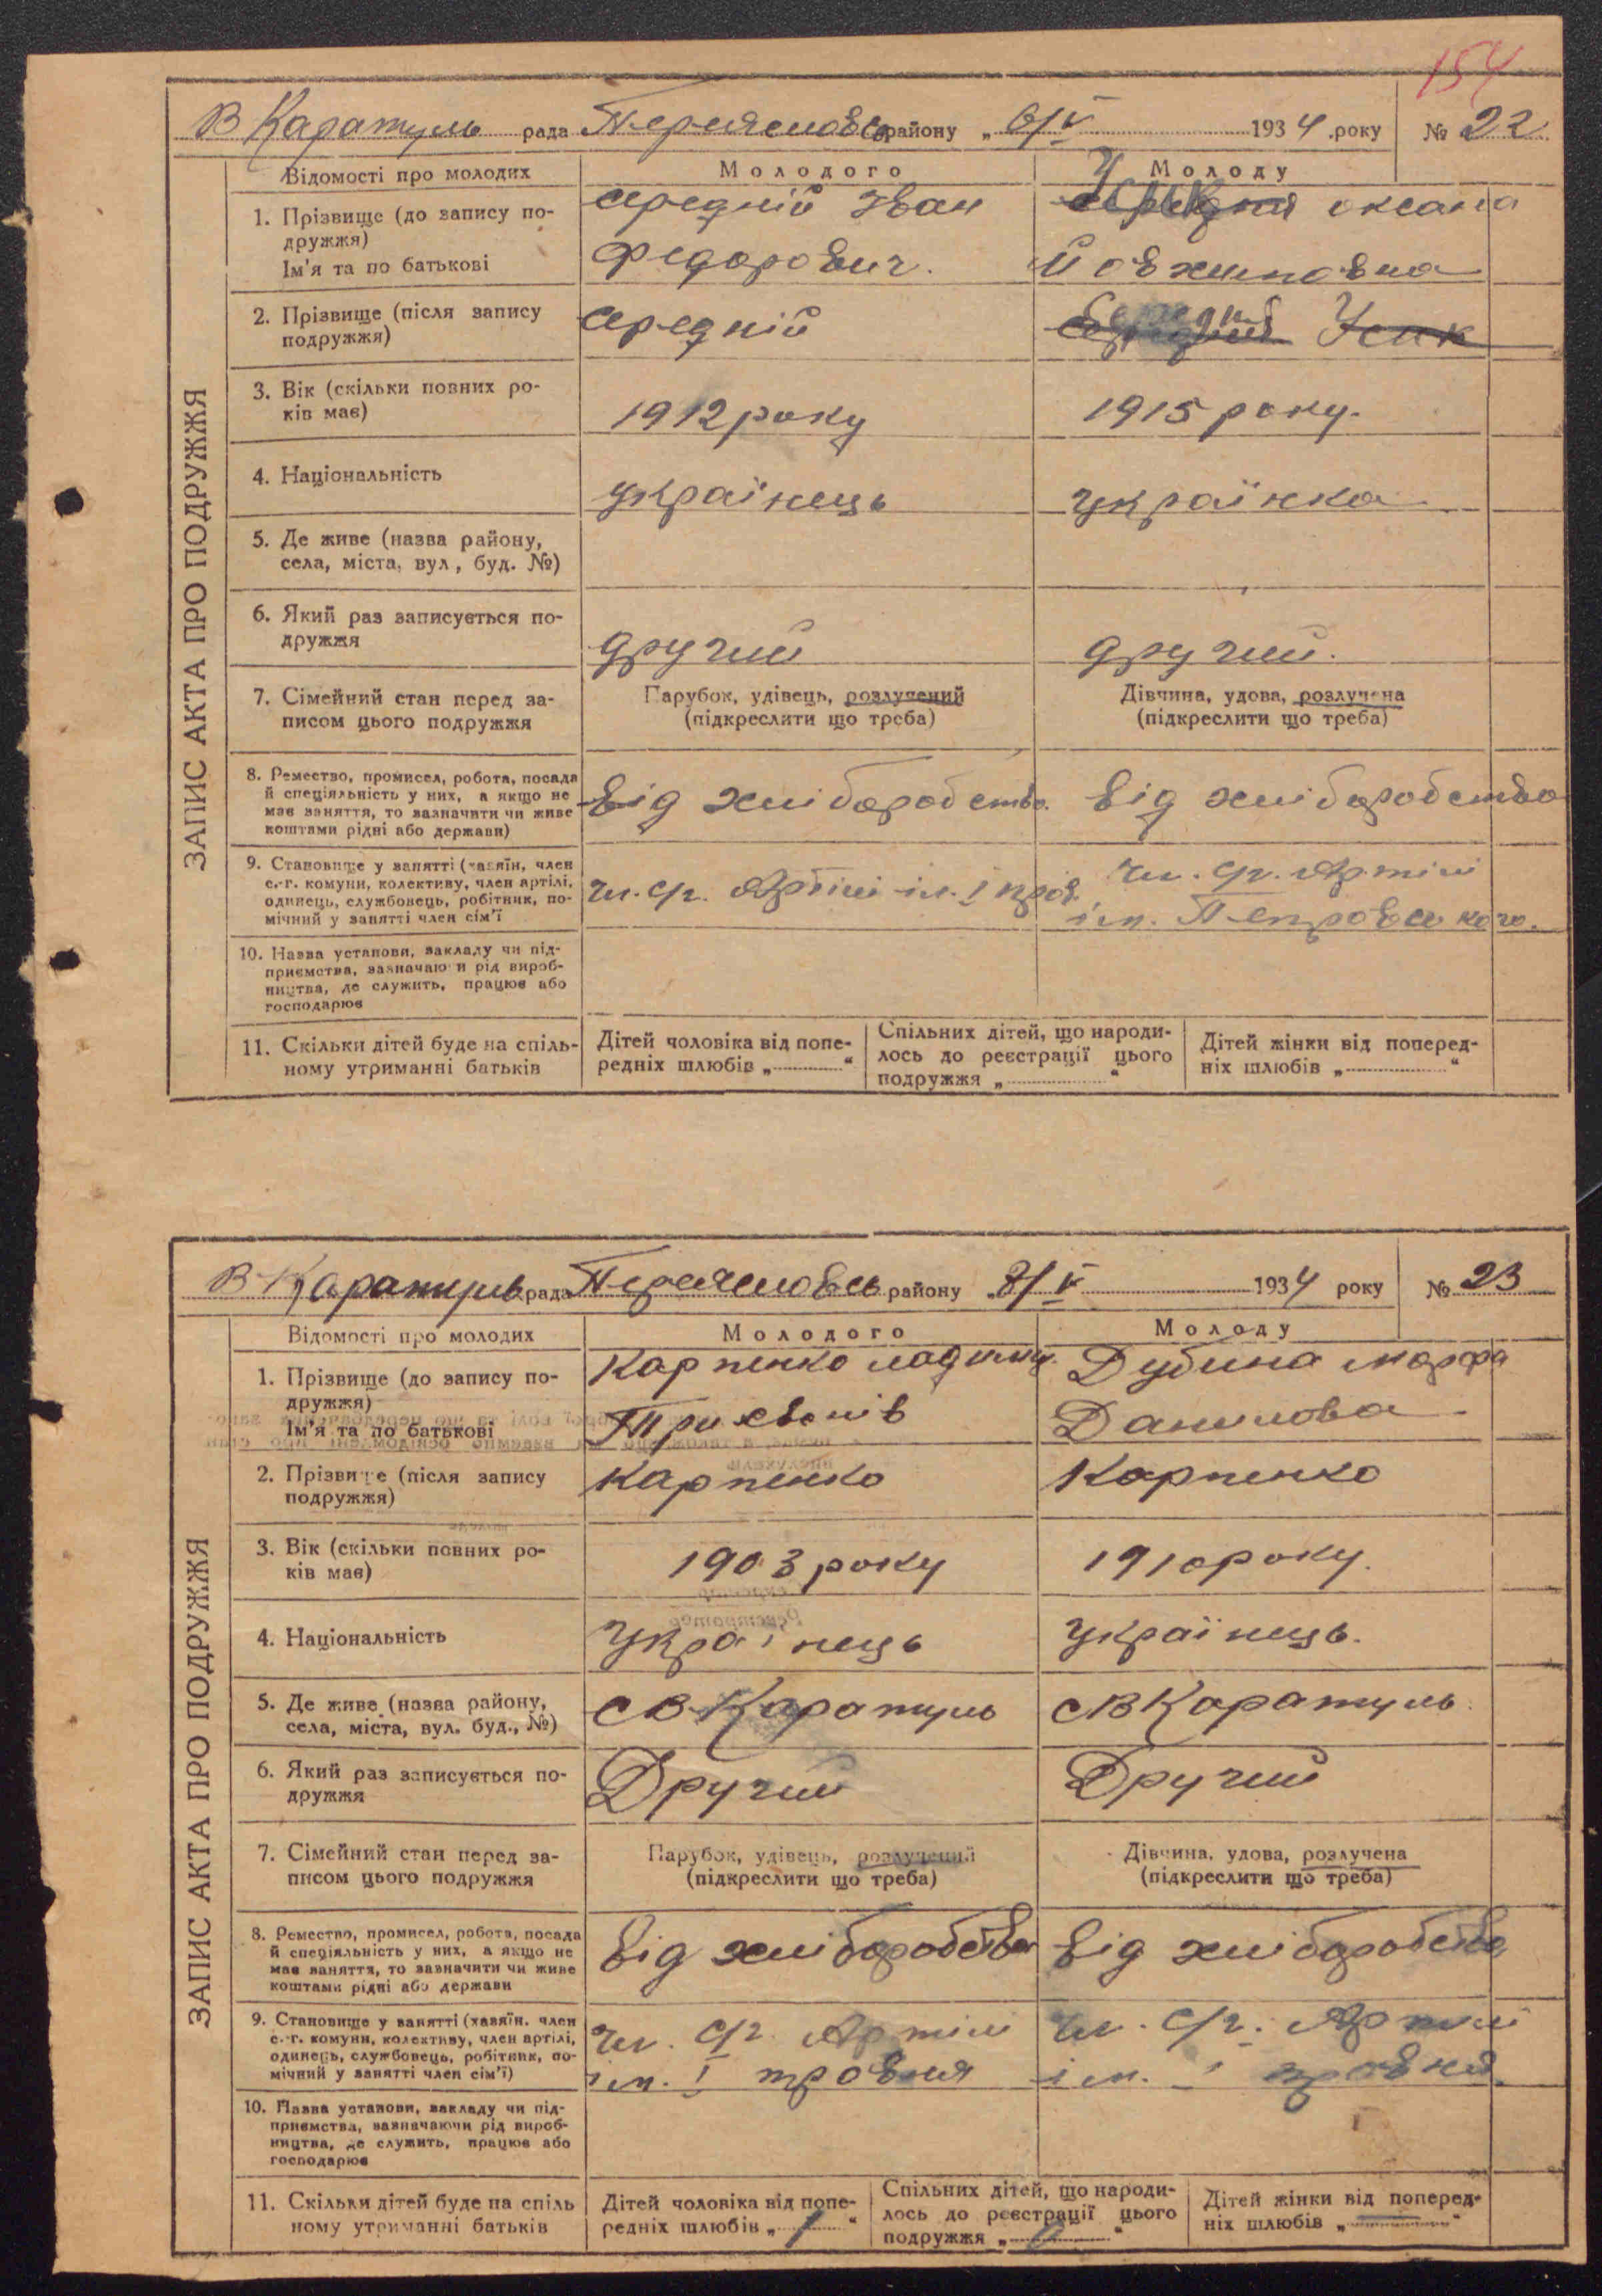 154
В Каратуль рада Переяславсь району „ 6/V 1934 року № 22
Відомості про молодих Молодого Молоду
1. Прізвище (до запису подружжя)
Ім'я та по батькові
середній Іван
Федорович.
Усик оксана
Йовхимовна
2. Прізвище (після запису
подружжя)
середній
Усик
3. Вік (скільки повних ро-
ків має)
1912 року
1915 року.
4. Національність
українець
українка
5. Де живе (назва району,
села, міста, вул, буд. №)
6. Який раз записується по-
дружжя
другий
другий.
7. Сімейний стан перед за-
писом цього подружжя
Парубок, удівець, розлучений
(підкреслити що треба)
Дівчина, удова, розлучена
(підкреслити що треба)
8. Ремество, промисел, робота, посада
й спеціяльність у них, а якщо не
має заняття, то зазначити чи живе
коштами рідні або держави)
від хліборобства.
від хліборобства
9. Становище у занятті (хазяїн, член
с.-г. комуни, колективу, член артілі,
одинець, службовець, робітник, по-
мічний у занятті член сім'ї
Чл. с/г. Артілі ім. І трав.
Чл. с/г. Артілі
ім. Петровського.
10. Назва установи, закладу чи під-
приємства, зазначаючи рід вироб-
ництва, де служить, працює або
господарює
11. Скільки дітей буде на спіль-
ному утриманні батьків
Дітей чоловіка від попе-
редніх шлюбів „ “
Спільних дітей, що народи-
лось до реєстрації цього
подружжя „ “
Дітей жінки від поперед-
ніх шлюбів „ “
ЗАПИС АКТА ПРО ПОДРУЖЖЯ
В Каратуль рада Переяславсь району „ 8/V 1934 року № 23
Відомості про молодих Молодого Молоду
1. Прізвище (до запису по-
дружжя)
Ім'я та по батькові
Карпенко
Дубина марфа
Данилова
2. Прізвище (після запису
подружжя)
Карпенко
Карпенко
3. Вік (скільки повних ро-
ків має)
1903 року
1910 року.
4. Національність
Українець
Українець.
5. Де живе (назва району,
села, міста, вул. буд., №)
с В Каратуль
с В Каратуль.
6. Який раз записується по-
дружжя
Другий
Другий
7. Сімейний стан перед за-
писом цього подружжя
Парубок, удівець, розлучений
(підкреслити що треба)
Дівчина, удова, розлучена
(підкреслити що треба)
8. Ремество, промисел, робота, посада
й спеціяльність у них, а якщо не
має заняття, то зазначити чи живе
коштами рідні або держави
від хліборобства
від хліборобства
9. Становище у занятті (хазяїн, член
с.-г. комуни, колективу, член артілі,
одинець, службовець, робітник, по-
мічний у занятті член сім'ї)
Чл. с/г. Артілі
ім. І травня
Чл. с/г. Артілі
ім. І травня.
10. Назва установи, закладу чи під-
приємства, зазначаючи рід вироб-
ництва, де служить, працює або
господарює
11. Скільки дітей буде на спіль
ному утриманні батьків
Дітей чоловіка від попе-
редніх шлюбів „ 1 “
Спільних дітей, що народи-
лось до реєстрації цього
подружжя „ “
Дітей жінки від поперед-
ніх шлюбів „ — “
ЗАПИС АКТА ПРО ПОДРУЖЖЯ